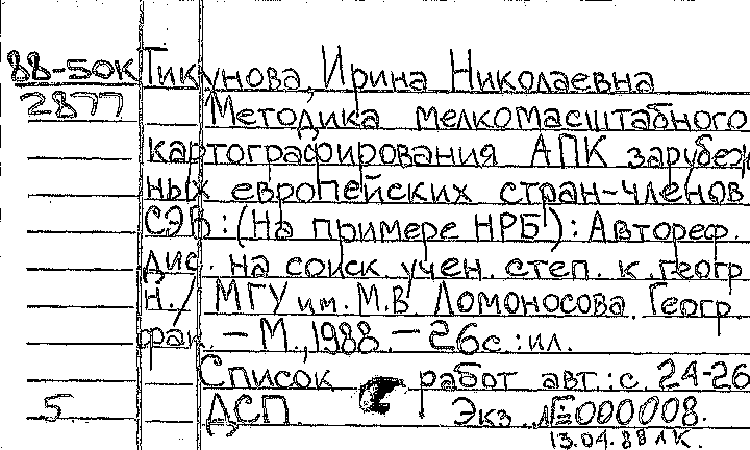 88-50К Тикунова, Ирина Николаевна
2877 Методика мелкомасштабного
картографирования АПК зарубеж
ных европейских стран-членов
СЭВ : (На примере НРБ) : Автореф.
дис. на соиск. учен. степ. к. геогр
н. / МГУ им. М.В. Ломоносова. Геогр
фак. – М., 1988. – 26с. : ил.
Список работ авт.: с. 24-26
5 ДСП. Экз. №000008.
13.04.88 ЛК.